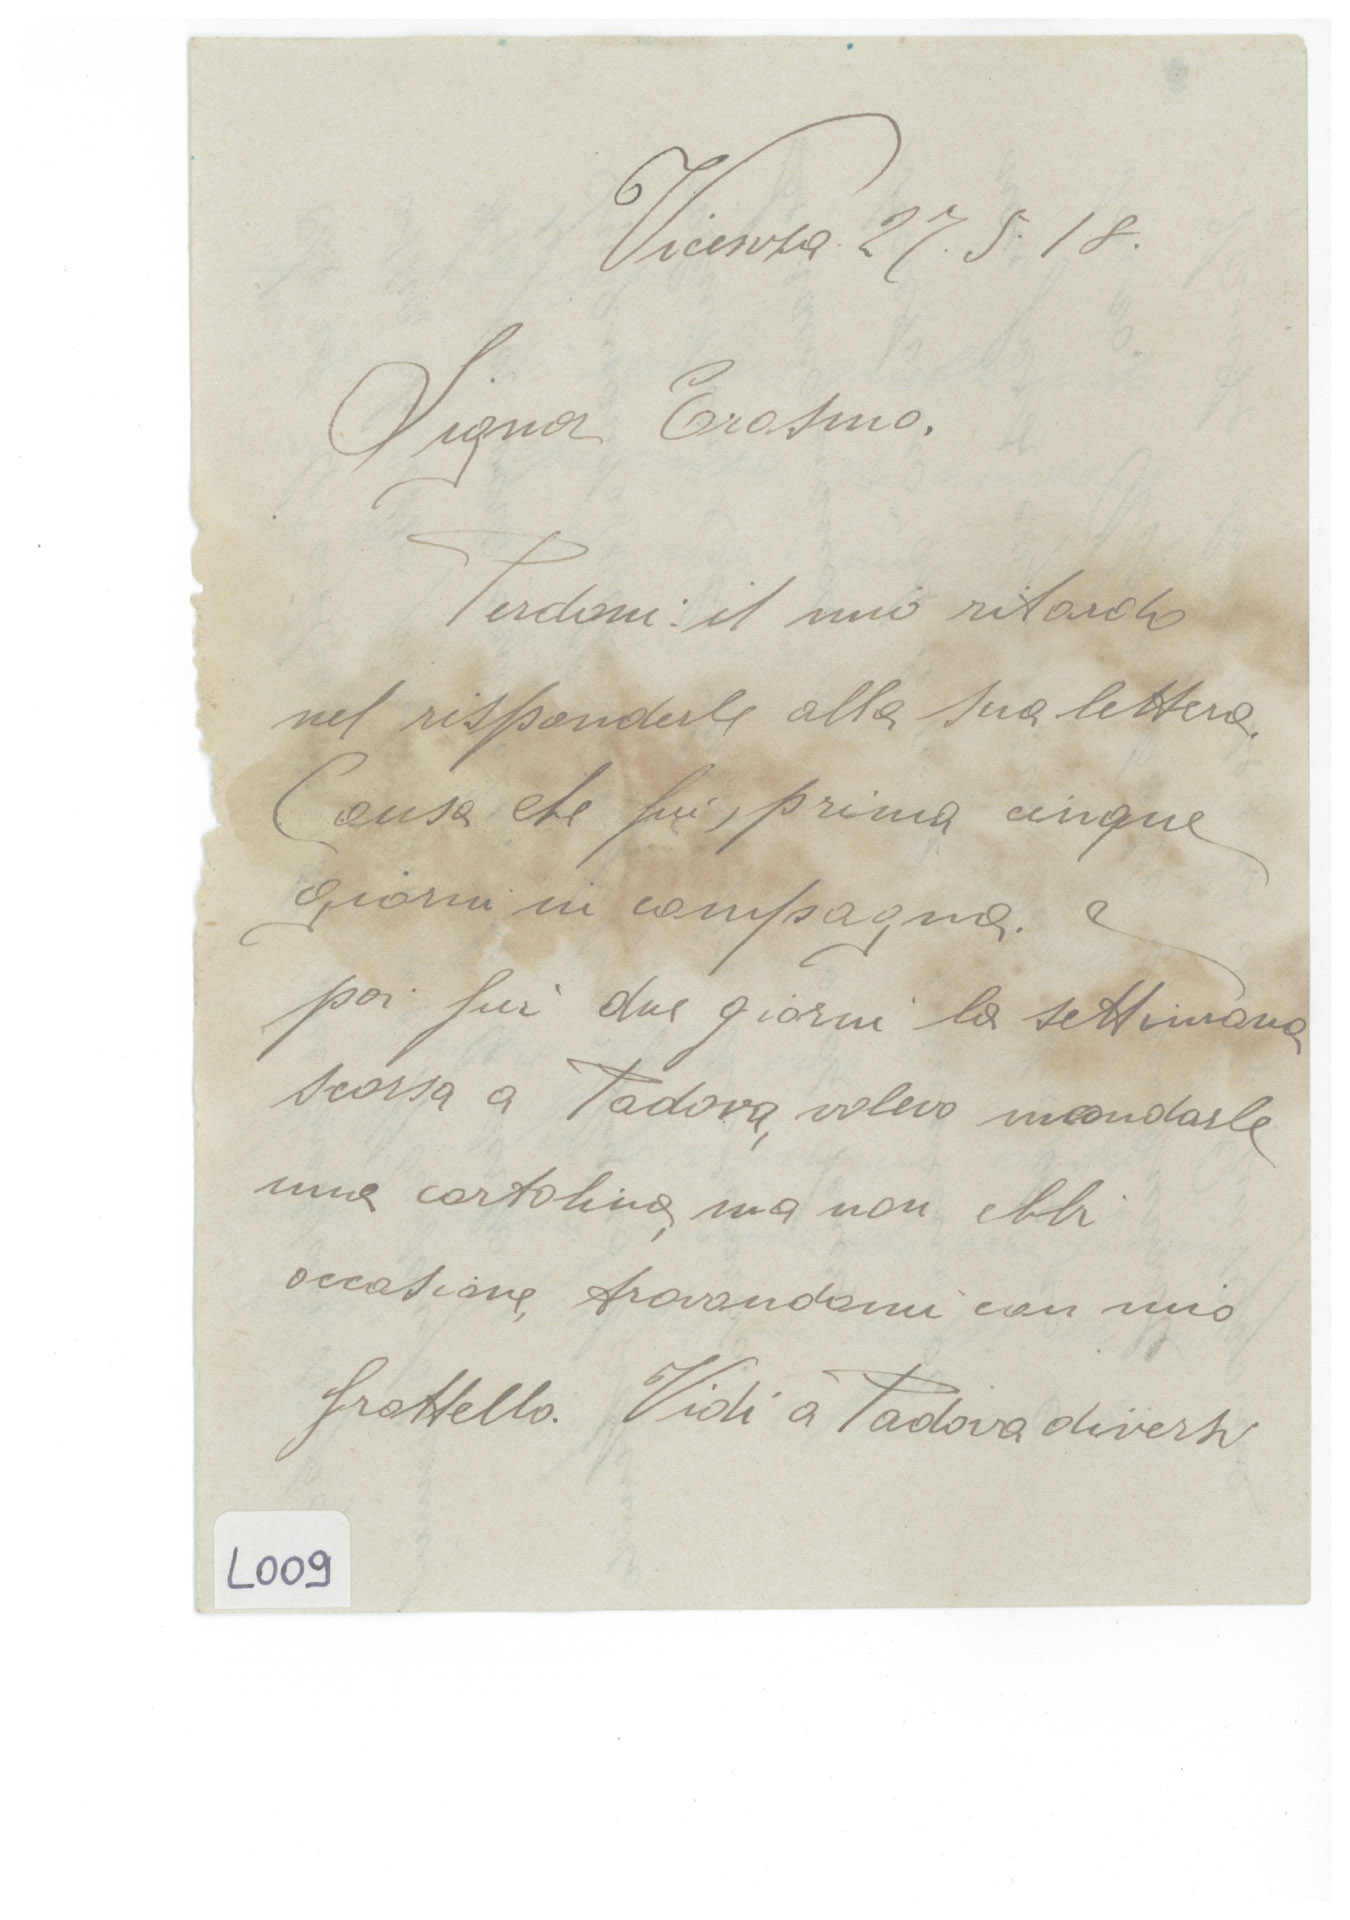 Vicenza 27. 5. 18.
Signor Erasmo.
Perdoni il mio ritardo
nel risponderle alla sua lettera.
Causa che fui, prima cinque
giorni in compagna. e
poi fui due giorni la settimana
scorsa a Padova, volevo mandarle
una cartolina, ma non ebbi
occasione, trovandomi con mio
frattello. Vidi a Padova diversi
L009